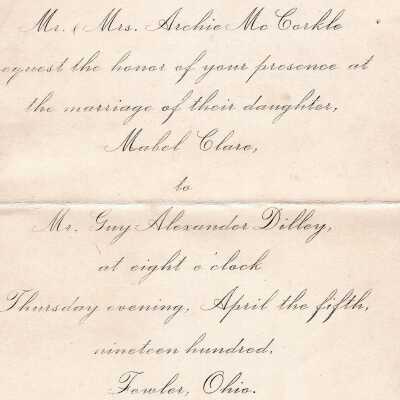 Mr. & Mrs. Archie McCorkle
equest the honor of your presence at
the marriage of their daughter,
Mabel Clare,
to
Mr. Guy Alexander Dilley,
at eight o'clock
Thursday evening, April the fifth,
nineteen hundred,
Fowler, Ohio.